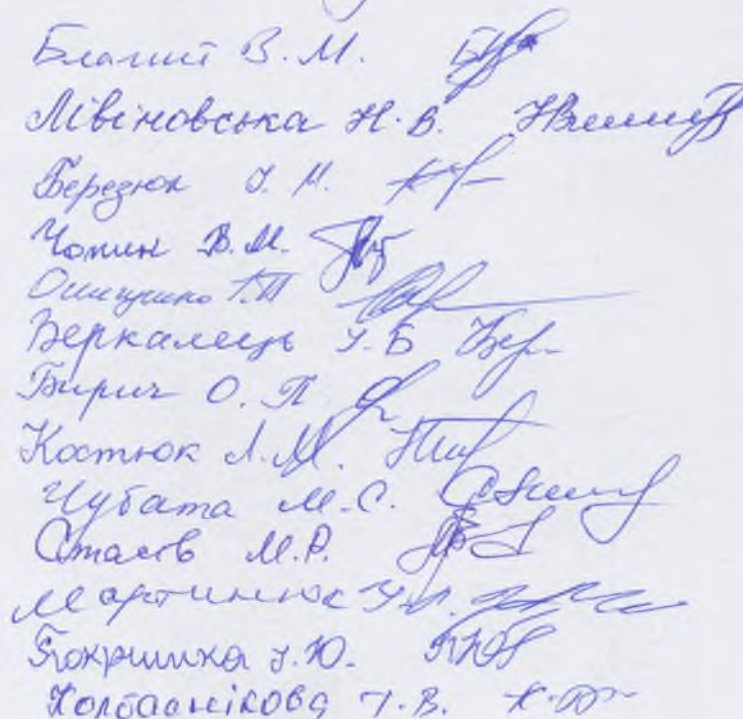 Благий В. М.
Лівіновська Н. В.
Березюк І. М.
Чопик В. М.
Онищенко Т. П
Веркалець У. Б
Бирич О. П.
Костюк Л. М.
Чубата М. С.
Стасів М. Р.
Мартинюк У. М.
Покришка І. Ю.
Т. В.